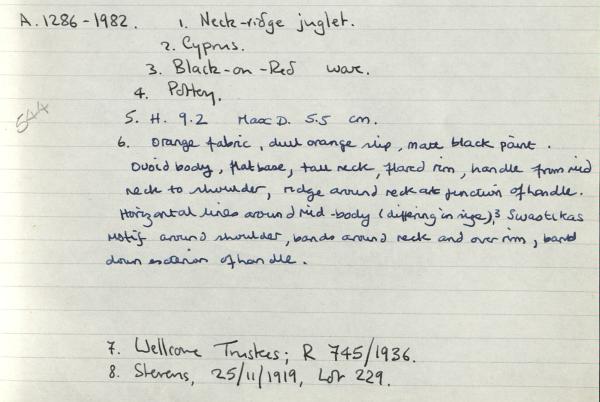 A.1286-1982. 1. Neck-ridge juglet.
2. Cyprus.
3. Black-on-Red ware.
4. Pottery.
544
5. H. 9.2 Max D. 5.5 cm.
6. Orange fabric, dull orange slip, matt black paint.
Ovoid body, flat base, tall neck, flared rim, handle from mid
neck to shoulder, ridge around neck at junction of handle.
Horizontal lines around mid-body (differing in size), 3 Swastikas
motif around shoulder, bands around neck and over rim, band
down exterior of handle.
7. Wellcome Trustees; R 745/1936.
8. Stevens, 25/11/1919, Lot 229.